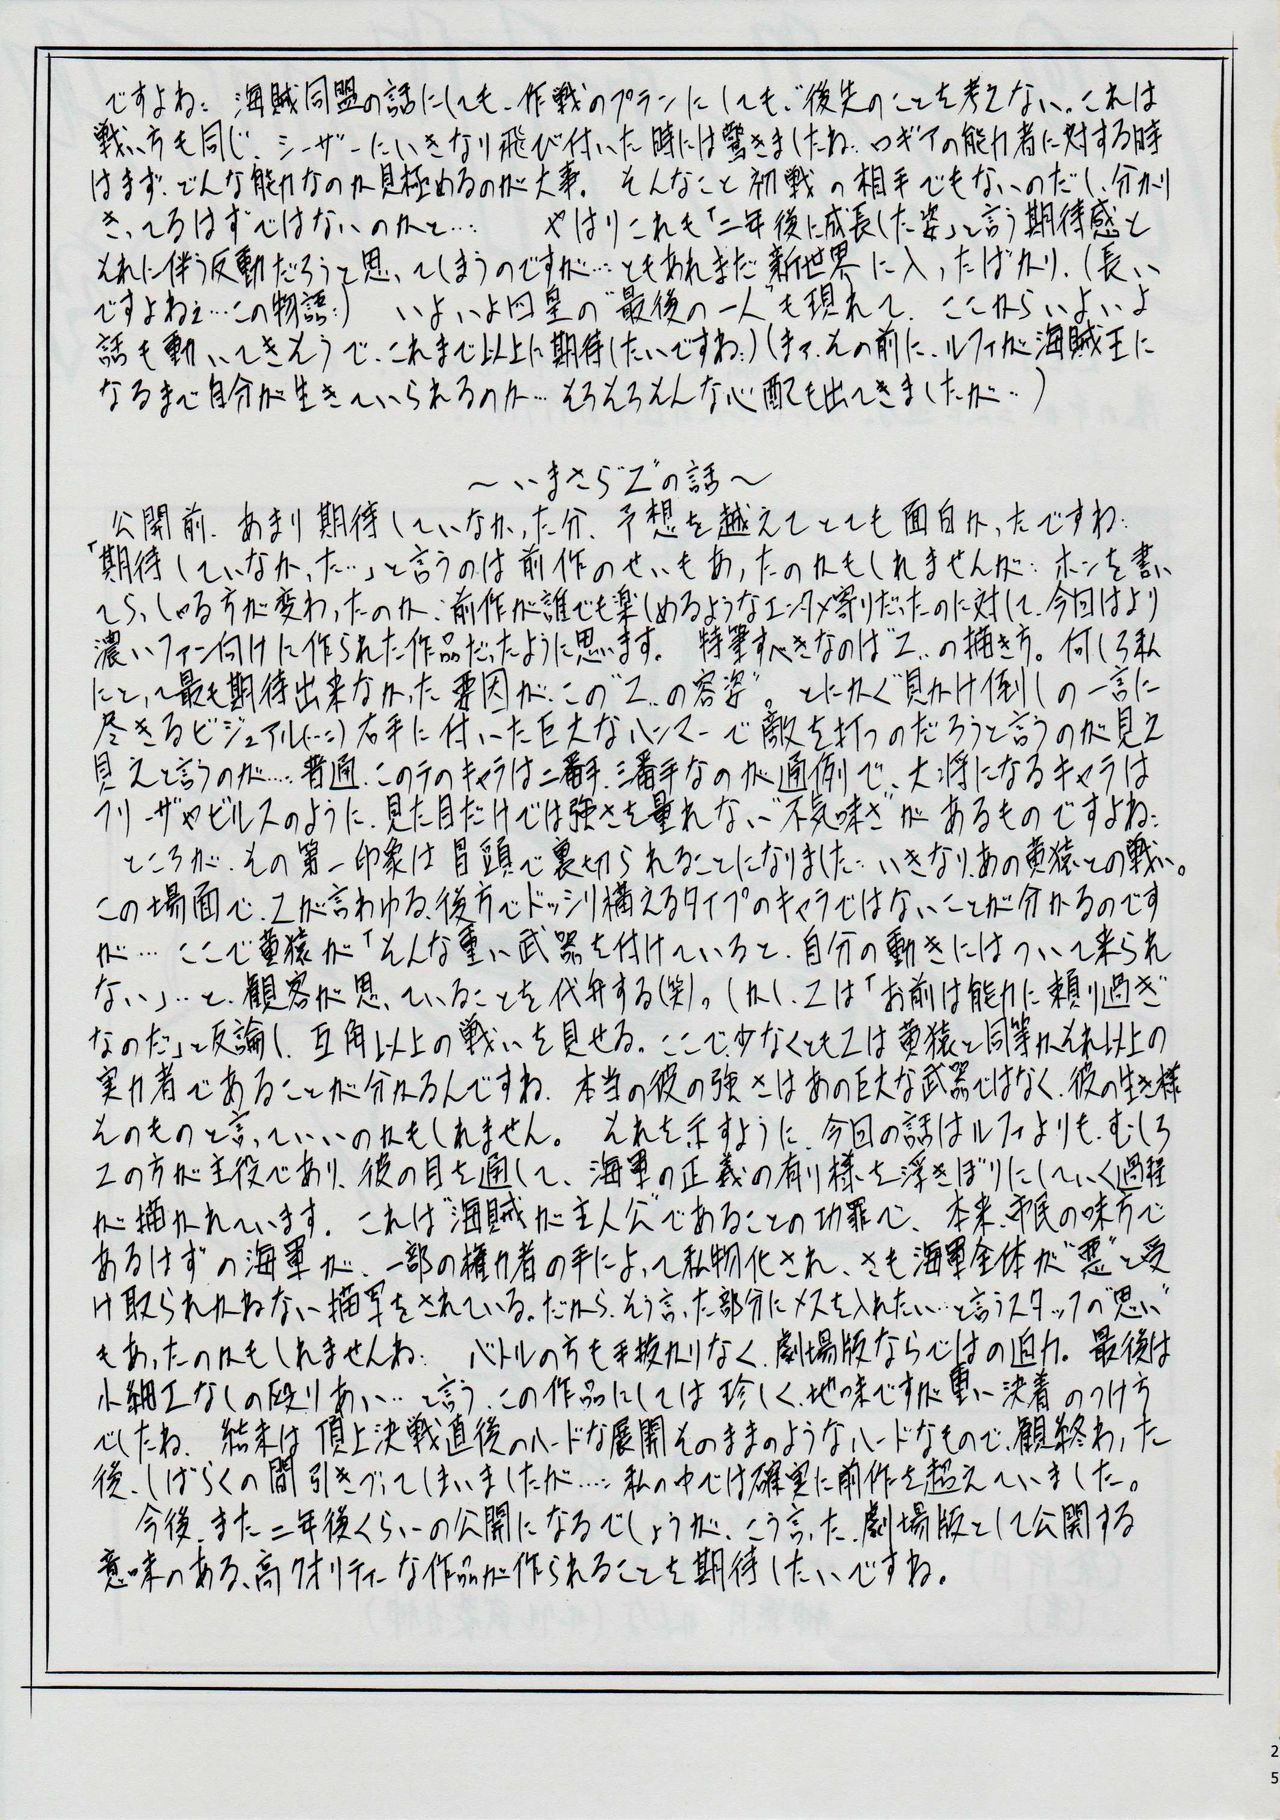 ですよね… 海賊同盟の話にしても、作戦のプランにしても、後先のことを考えない。これは
戦い方も同じ、シーザーにいきなり飛び付いた時には驚きましたね… ロギアの能力者に対する時
はまず、どんな能力なのか見極めるのが大事。 そんなこと初戦の相手でもないのだし、分かり
きってるはずではないのかと…… やはりこれも「二年後に成長した姿」と言う期待感と
それに伴う反動だろうと思ってしまうのですが…ともあれまだ新世界に入ったばかり、(長い
ですよねェ…この物語…) いよいよ四皇の“最後の一人”も現れて、ここからいよいよ
話も動いてきそうで、これまで以上に期待したいですね…)(まァ、その前に、ルフィが海賊王に
なるまで自分が生きていられるのか…そろそろそんな心配も出てきましたが…)
～いまさら“Z”の話～
公開前、あまり期待していなかった分、予想を越えてとても面白かったですね…
「期待していなかった…」と言うのは前作のせいもあったのかもしれませんが… ホンを書い
てらっしゃる方が変わったのか…前作が誰でも楽しめるようなエンタメ寄りだったのに対して、今回はより
濃いファン向けに作られた作品だったように思います。 特筆すべきなのは“Z”の描き方。何しろ私
にとって最も期待出来なかった要因が、この“Z”の容姿”。とにかく“見かけ倒しの一言に
尽きるビジュアル(…)右手に付いた巨大なハンマーで敵を打つのだろうと言うのが見え
見えと言うのが…… 普通、このテのキャラは二番手、三番手なのが通例で、大将になるキャラは
フリーザやビルスのように、見た目だけでは強さを量れない“不気味さ”があるものですよね…
ところが、その第一印象は冒頭で裏切られることになりました… いきなり、あの黄猿との戦い。
この場面で、Zが言わゆる、後方でドッシリ構えるタイプのキャラではないことが分かるのです
が… ここで黄猿が「そんな重い武器を付けていると、自分の動きにはついて来られ
ない」…と、観客が思っていることを代弁する(笑)。しかし、Zは「お前は能力に頼り過ぎ
なのだ」と反論し、互角以上の戦いを見せる。ここで、少なくともZは黄猿と同等かそれ以上の
実力者であることが分かるんですね、本当の彼の強さはあの巨大な武器ではなく、彼の生き様
そのものと言っていいのかもしれません。 それを示すように、今回の話はルフィよりも、むしろ
Zの方が主役であり、彼の目を通して、海軍の正義の有り様を浮きぼりにしていく過程
が描かれています。これは“海賊が主人公”であることの功罪で、本来、市民の味方で
あるはずの海軍が、一部の権力者の手によって私物化され、さも海軍全体が“悪”と受
け取られかねない描写をされている。だから、そう言った部分にメスを入れたい…と言うスタッフの“思い”
もあったのかもしれませんね… バトルの方も手抜かりなく、劇場版ならではの迫力。最後は
小細工なしの殴りあい…と言う、この作品にしては珍しく、地味ですが重い決着のつけ方
でしたね、結末は頂上決戦直後のハードな展開そのままのようなハードなもので、観終わった
後、しばらくの間引きづってしまいましたが……私の中では確実に前作を超えていました。
今後、また二年後くらいの公開になるでしょうが、こう言った、劇場版として公開する
意味のある、高クオリティーな作品が作られることを期待したいですね。
25